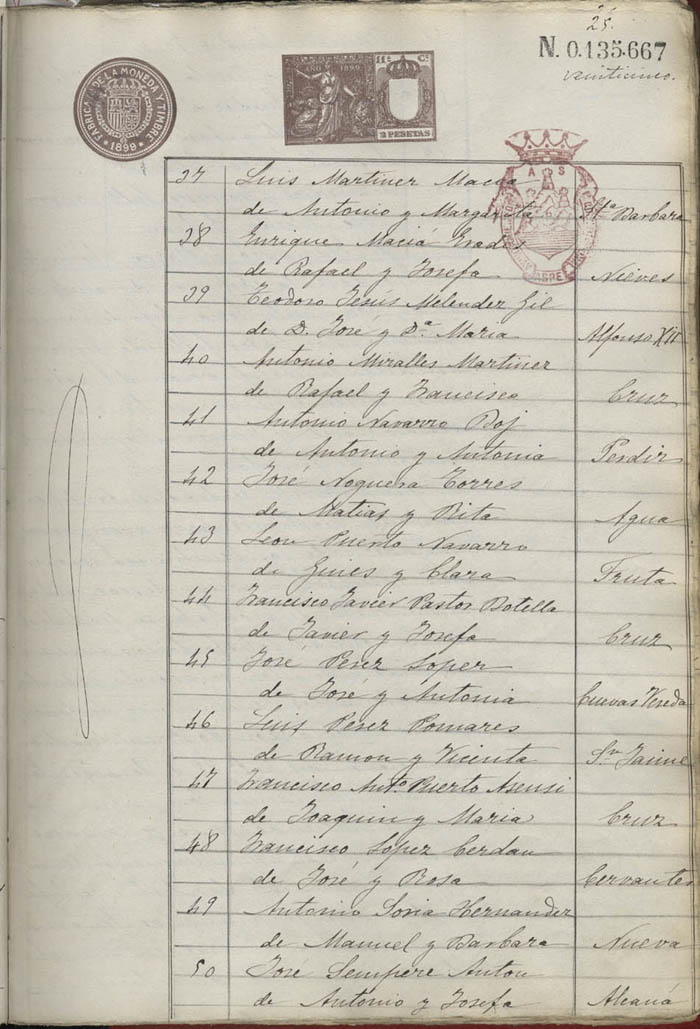 25.
N. 0.135.667
veinticinco.
FÁBRICA DE LA MONEDA Y TIMBRE
1899
AÑO 1899
11ª Cª
2 PESETAS
A S
ASPE
37 Luis Martinez Maciá
de Antonio y Margarita Sta Barbara
38 Enrique Maciá
de Rafael y Josefa Nieves
39 Teodoro Jesús Melendez Gil
de D. José y Dª Maria Alfonso XII
40 Antonio Miralles Martinez
de Rafael y Francisca Cruz
41 Antonio Navarro Boj
de Antonio y Antonia Perdir
42 José Noguera Torres
de Matias y Rita Agua
43 Leon Puerto Navarro
de Gines y Clara Fruta
44 Francisco Javier Pastor Botella
de Javier y Josefa Cruz
45 José Perez Soper
de José y Antonia Cuevas Vereda
46 Luis Perez Pomares
de Ramon y Vicenta Sn Jaime
47 Francisco Anto. Puerto Asensi
de Joaquin y Maria Cruz
48 Francisco Lopez Cerdan
de José y Rosa Cervantes
49 Antonio Soria Hernandez
de Manuel y Barbara Nueva
50 José Sempere Anton
de Antonio y Josefa Alcaná